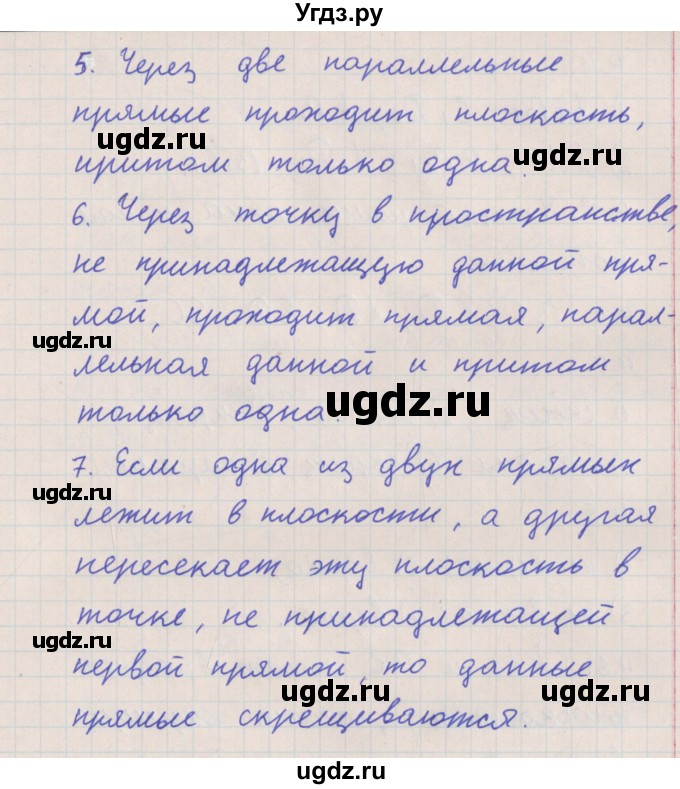 Угдз.ру
5. Через две параллельные
прямые проходит плоскость,
ugdz.ru
притом только одна.
ugdz.ru
6. Через точку в пространстве,
не принадлежащую данной пря-
мой, проходит прямая, парал-
ugdz.ru
лельная данной и притом
только одна.
ugdz.ru
7. Если одна из двух прямых
ugdz.ru
лежит в плоскости, а другая
пересекает эту плоскость в
точке, не принадлежащей
ugdz.ru
первой прямой, то данные
ugdz.ru ugdz.ru
прямые скрещиваются.
ugdz.ru